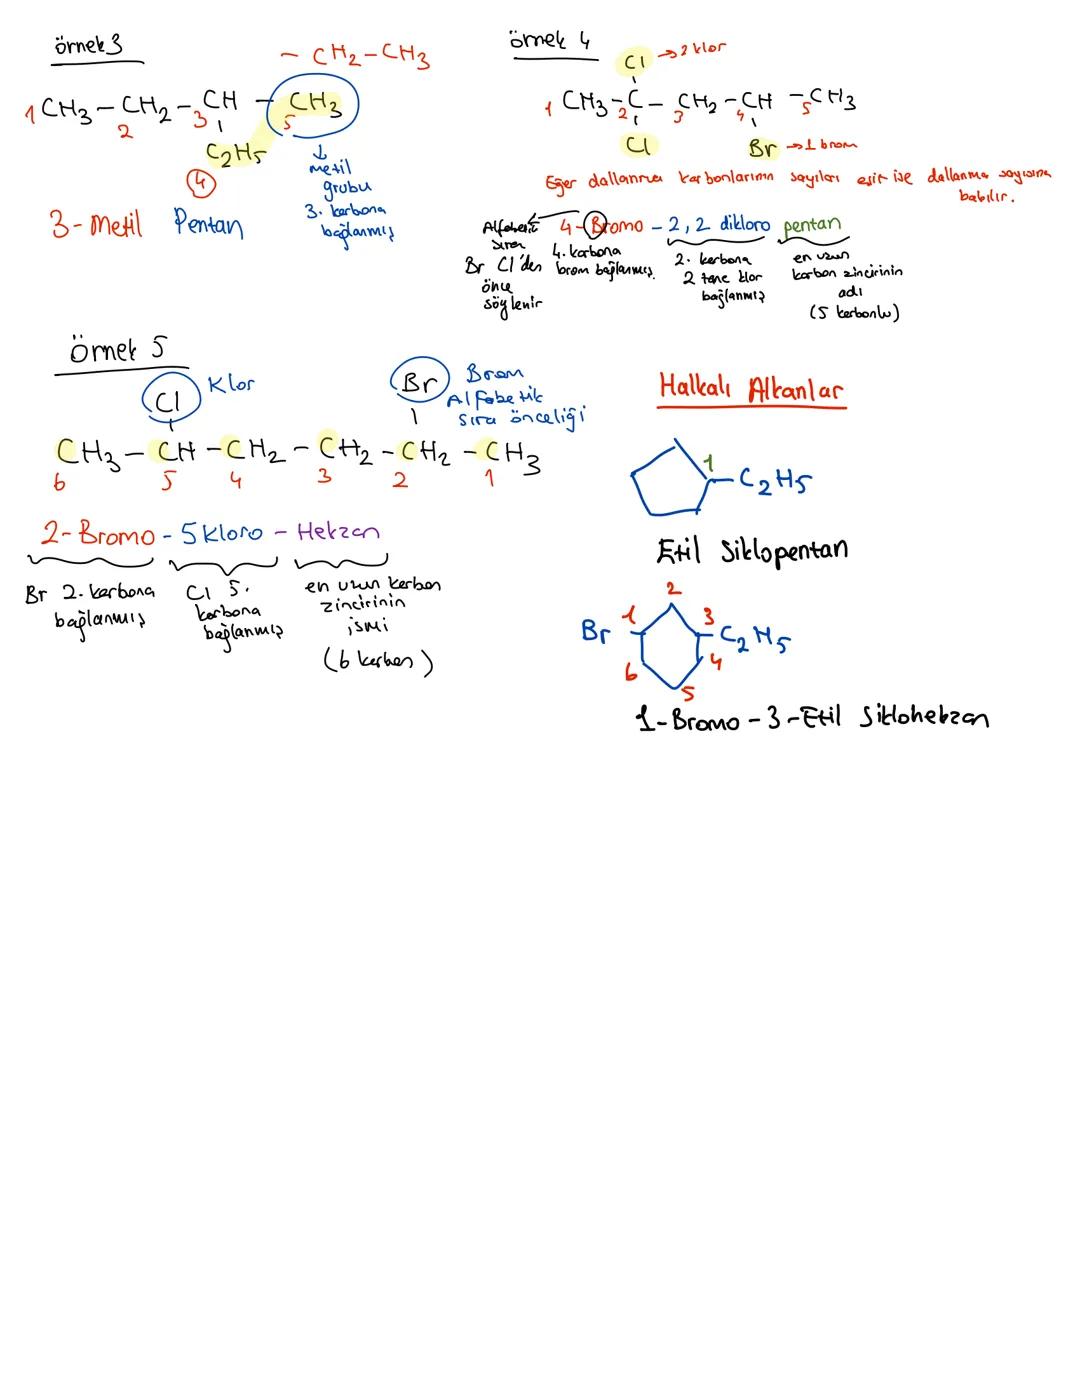 örnek 3
- CH₂-CH₃
CH₃ - CH₂ - CH - CH₃
1 2 3 5
C₂H₅
4
metil
grubu
3. karbona
bağlanmış
3-Metil Pentan
örnek 4
Cl → 2 klor
CH₃ - C - CH₂ - CH - CH₃
1 2 3 4 5
Cl Br → 1 brom
Eğer dallanma karbonlarının sayıları eşit ise dallanma sayısına
bakılır.
4-Bromo - 2,2 dikloro pentan
Alfabetik
sıra
Br Cl'den
önce
söylenir
4. karbona
brom bağlanmış.
2. karbona
2 tane klor
bağlanmış
en uzun
karbon zincirinin
adı
(5 karbonlu)
Örnek 5
Cl Klor
Br Brom
Alfabetik
sıra önceliği
CH₃ - CH - CH₂ - CH₂ - CH₂ - CH₃
6 5 4 3 2 1
2-Bromo - 5 kloro - Hekzan
Br 2. karbona
bağlanmış
Cl 5.
karbona
bağlanmış
en uzun karbon
zincirinin
ismi
(6 karbon)
Halkalı Alkanlar
1
C₂H₅
Etil Siklopentan
2
1 3
Br C₂H₅
6 4
5
1-Bromo-3-Etil Siklohekzan